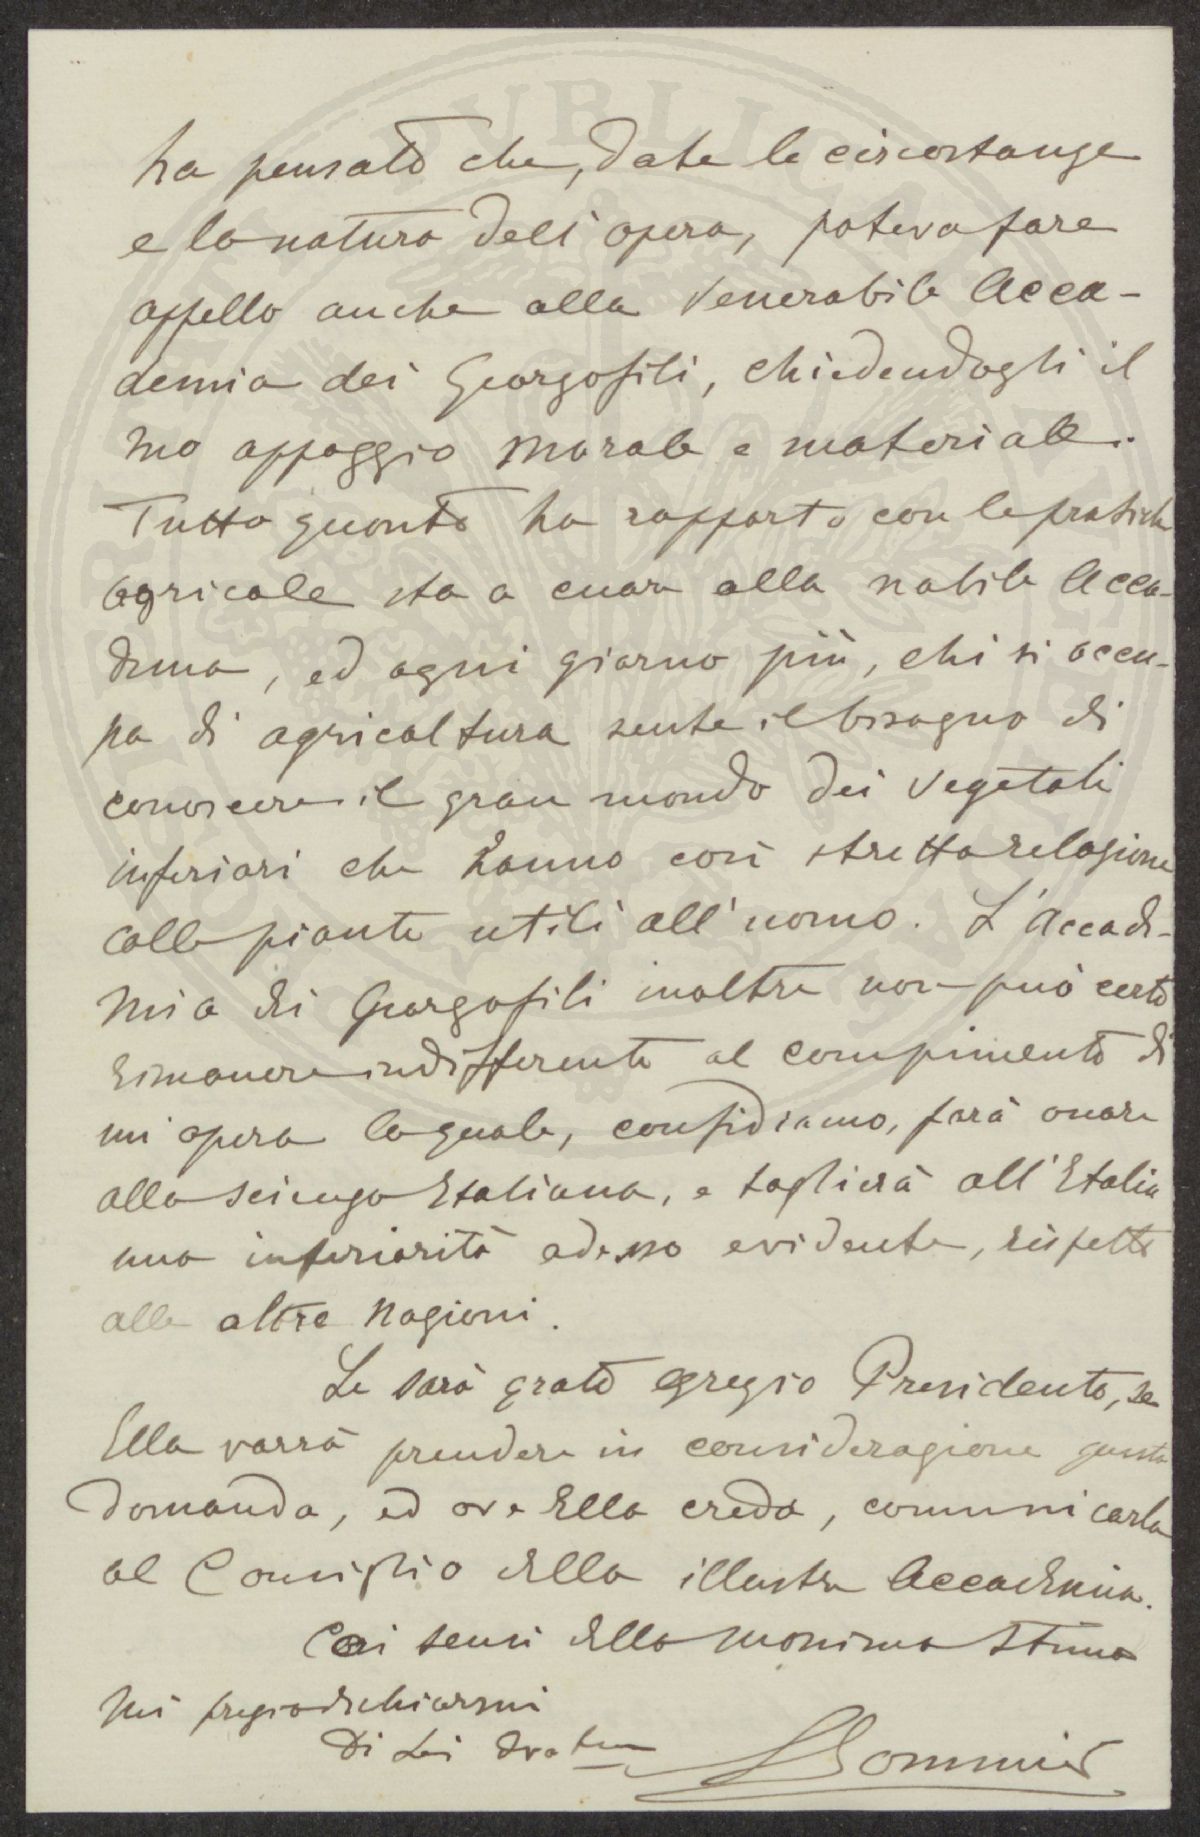 ha pensato che, date le circostanze
e la natura dell'opera, poteva fare
appello anche alla Venerabile Acca-
demia dei Georgofili, chiedendogli il
suo appoggio morale e materiale.
Tutto quanto ha rapporto con le pratiche
agricole sta a cuore alla nobile Acca-
demia, ed ogni giorno più, chi si occu-
pa di agricoltura sente il bisogno di
conoscere il gran mondo dei vegetali
inferiori che hanno così stretta relazione
colle piante utili all'uomo. L'Accade-
mia dei Georgofili inoltre non può certo
rimanere indifferente al compimento di
un'opera la quale, confidiamo, farà onore
alla scienza Italiana, e toglierà all'Italia
una inferiorità adesso evidente, rispetto
alle altre Nazioni.
Le sarò grato egregio Presidente, se
Ella vorrà prendere in considerazione questa
domanda, ed ove Ella creda, comunicarla
al Consiglio della illustre Accademia.
Coi sensi della massima stima
mi pregio dichiararmi
Di Lei devotmo
SSommier
PUBLICAE